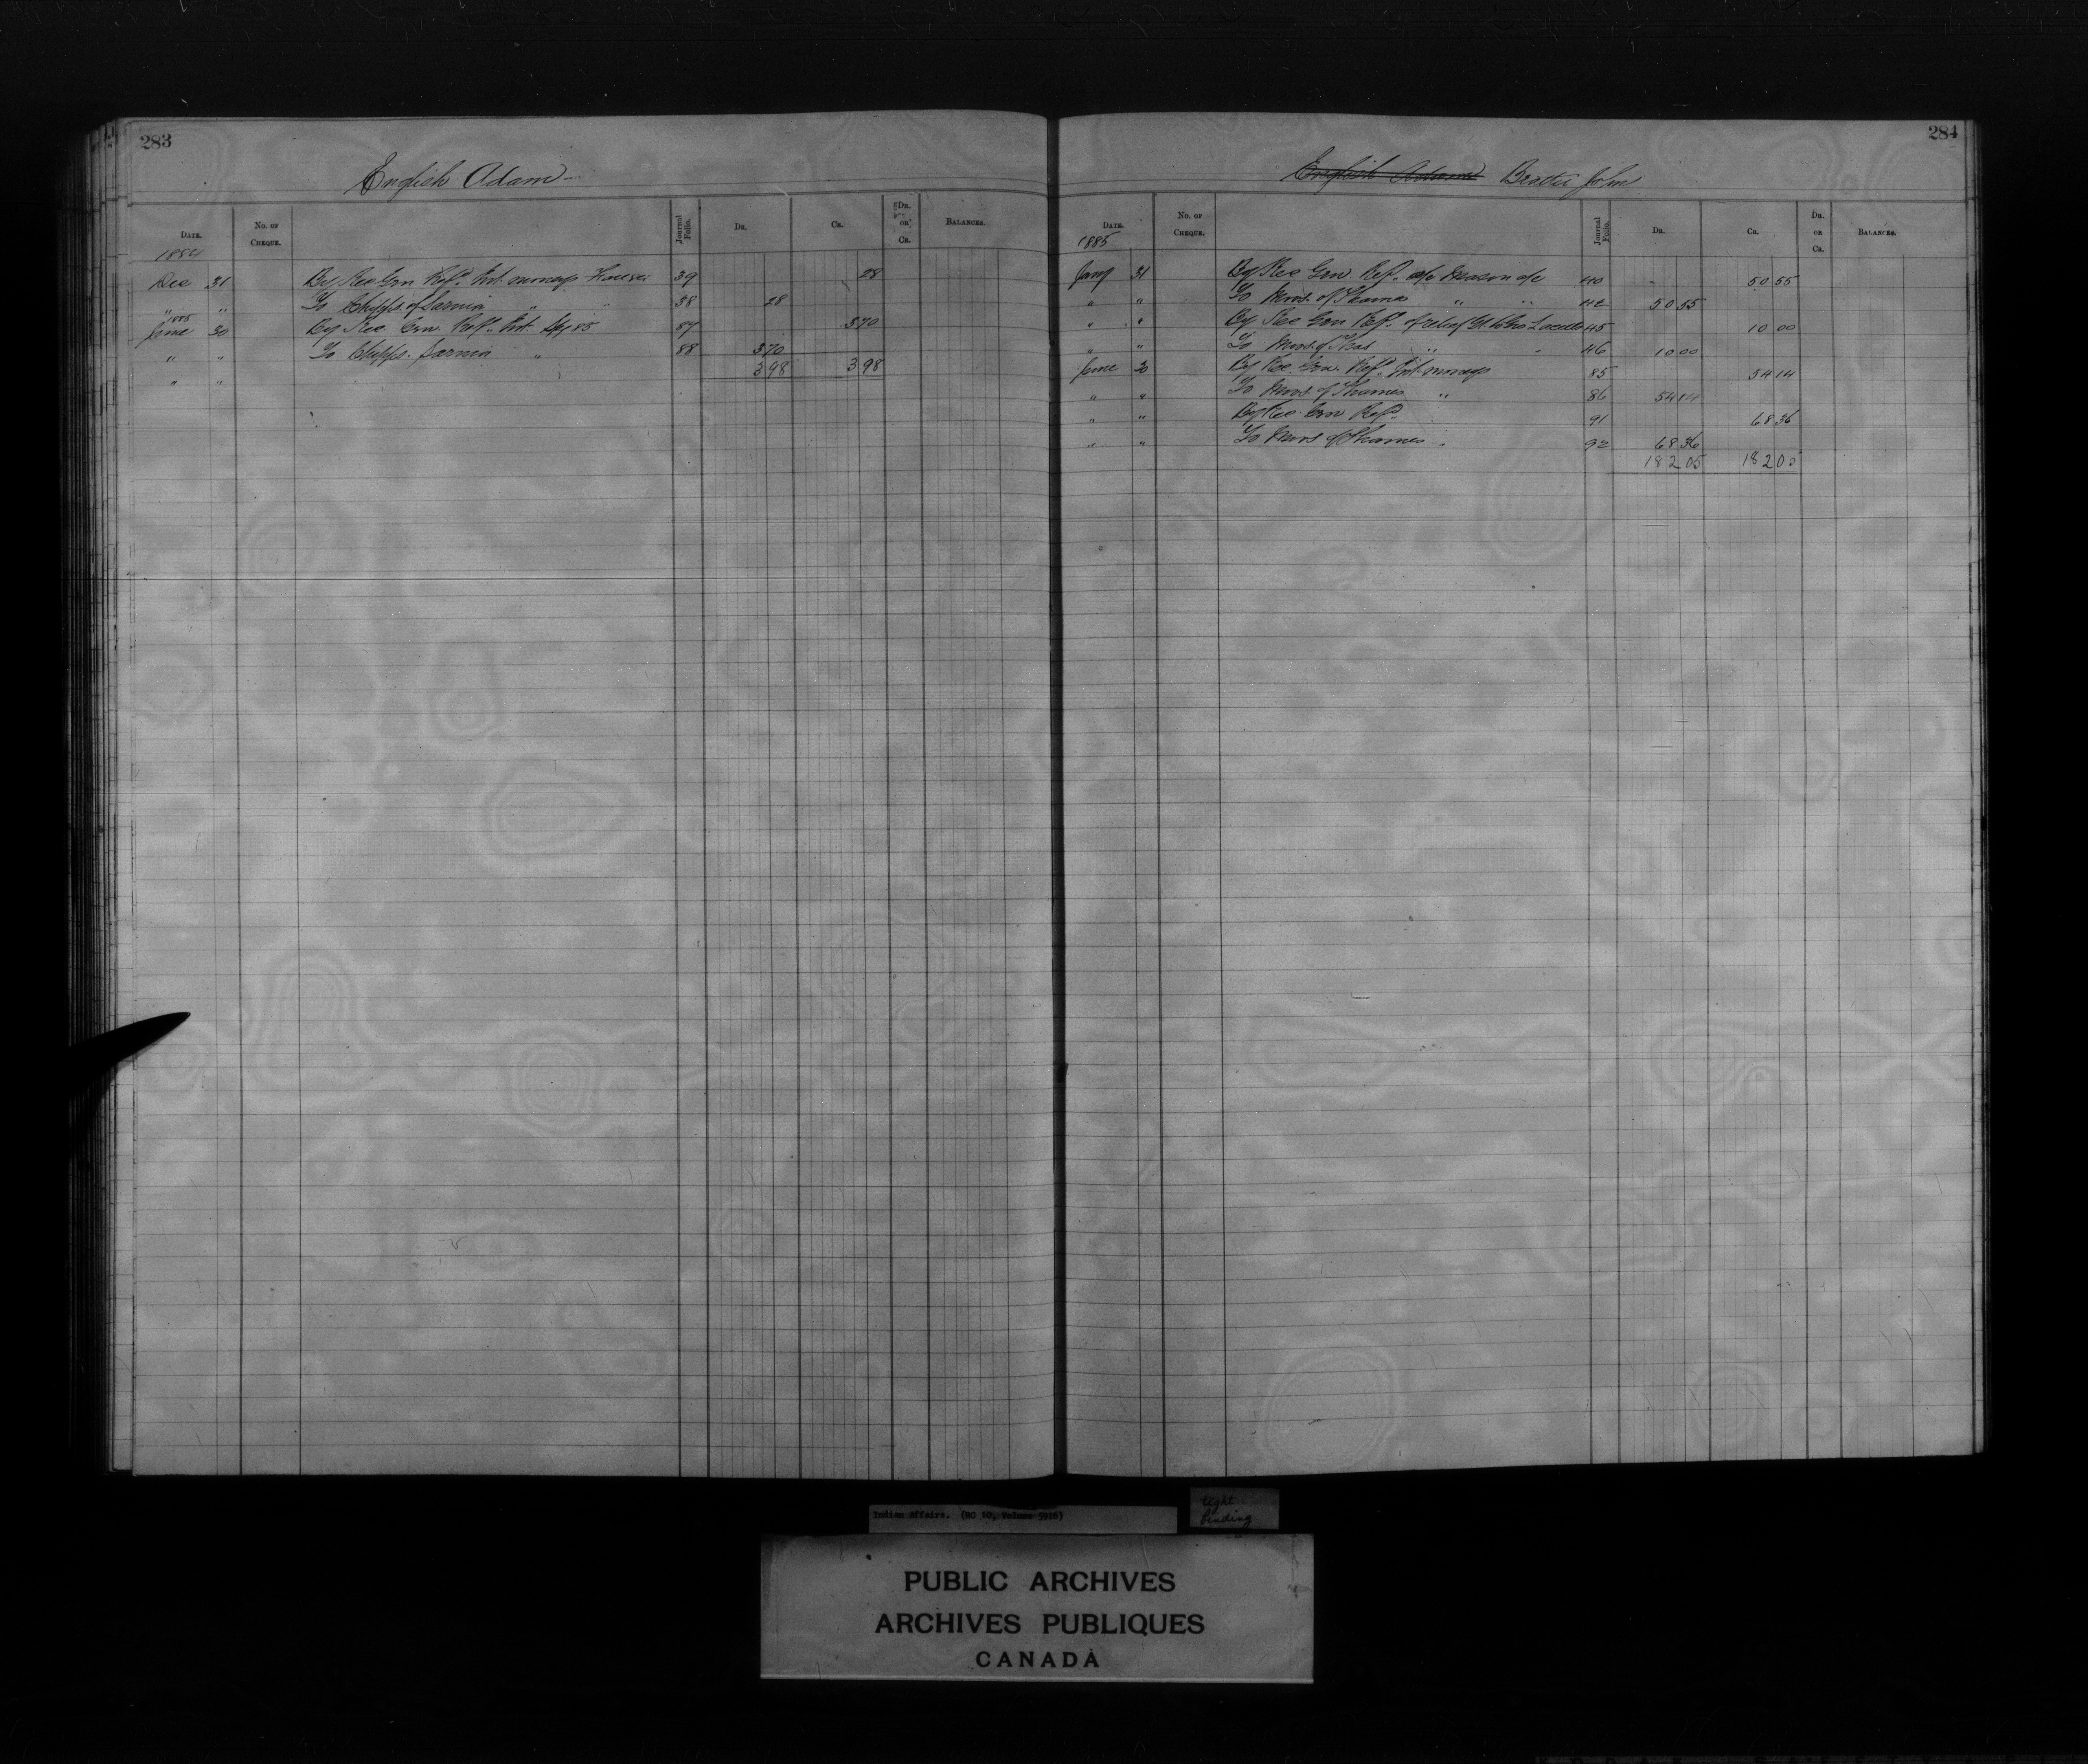 283
English Adam
DATE. NO. OF CHEQUE. Journal Folio. DR. CR. DR. or CR. BALANCES.
1884
Dec 31 By Rec Gen Refd. Int. moneys 39 28
" " To Chipps. of Sarnia " " 38 28
1885
June 30 By Rec. Gen. Refd. Int. 85 87 3 70
" " To Chipps. Sarnia " 88 3 70
" " 3 98 3 98
284
English Adam Beattie John
DATE. NO. OF CHEQUE. Journal Folio. DR. CR. DR. or CR. BALANCES.
1885
Jany 31 By Rec Gen Refd. a/c 40 50 55
" " To Mors. of Thames " " 42 50 55
" " By Rec Gen Refd. of relief to Geo 45 10 00
" " To Mors. of Thas " " 46 10 00
June 30 By Rec. Gen. Refd. Int. moneys 85 54 14
" " To Mors. of Thames " 86 54 14
" " By Rec. Gen Refd. 91 68 36
" " To Mors of Thames " 92 68 36
182 05 182 05
Indian Affairs. (RG 10, Volume 5926)
tight
binding
PUBLIC ARCHIVES
ARCHIVES PUBLIQUES
CANADA